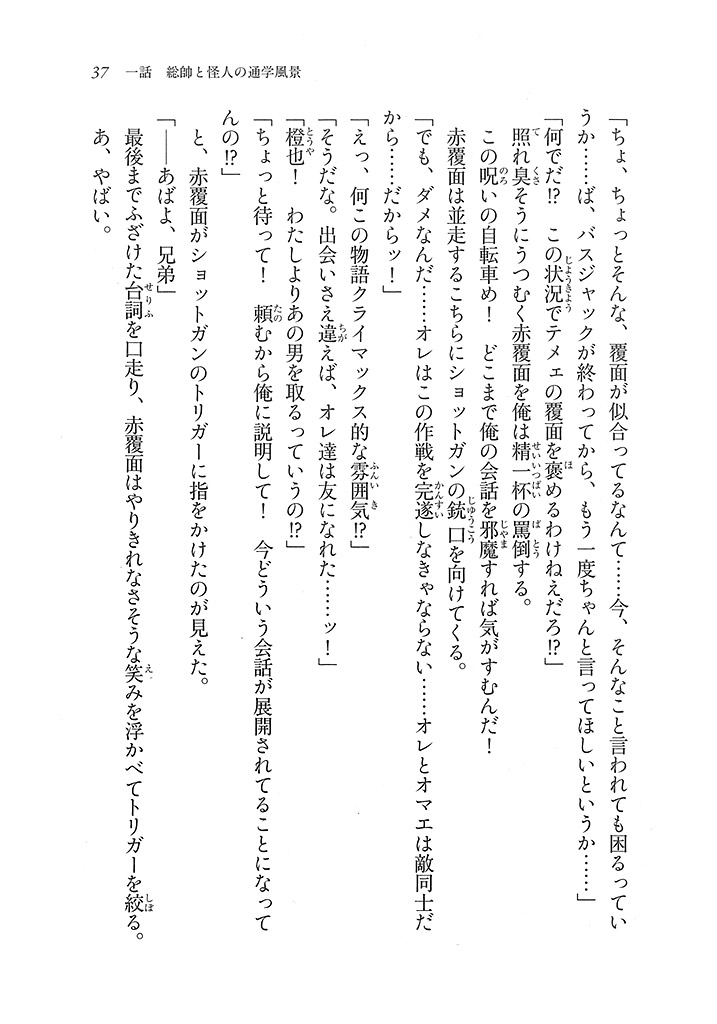 37　一話　総帥と怪人の通学風景
「ちょ、ちょっとそんな、覆面が似合ってるなんて……今、そんなこと言われても困るってい
うか……ば、バスジャックが終わってから、もう一度ちゃんと言ってほしいというか……」
「何でだ!?　この状況でテメェの覆面を褒めるわけねえだろ!?」
照れ臭そうにうつむく赤覆面を俺は精一杯の罵倒する。
この呪いの自転車め！　どこまで俺の会話を邪魔すれば気がすむんだ！
赤覆面は並走するこちらにショットガンの銃口を向けてくる。
「でも、ダメなんだ……オレはこの作戦を完遂しなきゃならない……オレとオマエは敵同士だ
から……だからッ！」
「えっ、何この物語クライマックス的な雰囲気!?」
「そうだな。出会いさえ違えば、オレ達は友になれた……ッ！」
「橙也！　わたしよりあの男を取るっていうの!?」
「ちょっと待って！　頼むから俺に説明して！　今どういう会話が展開されてることになって
んの!?」
と、赤覆面がショットガンのトリガーに指をかけたのが見えた。
「――あばよ、兄弟」
最後までふざけた台詞を口走り、赤覆面はやりきれなさそうな笑みを浮かべてトリガーを絞る。
あ、やばい。